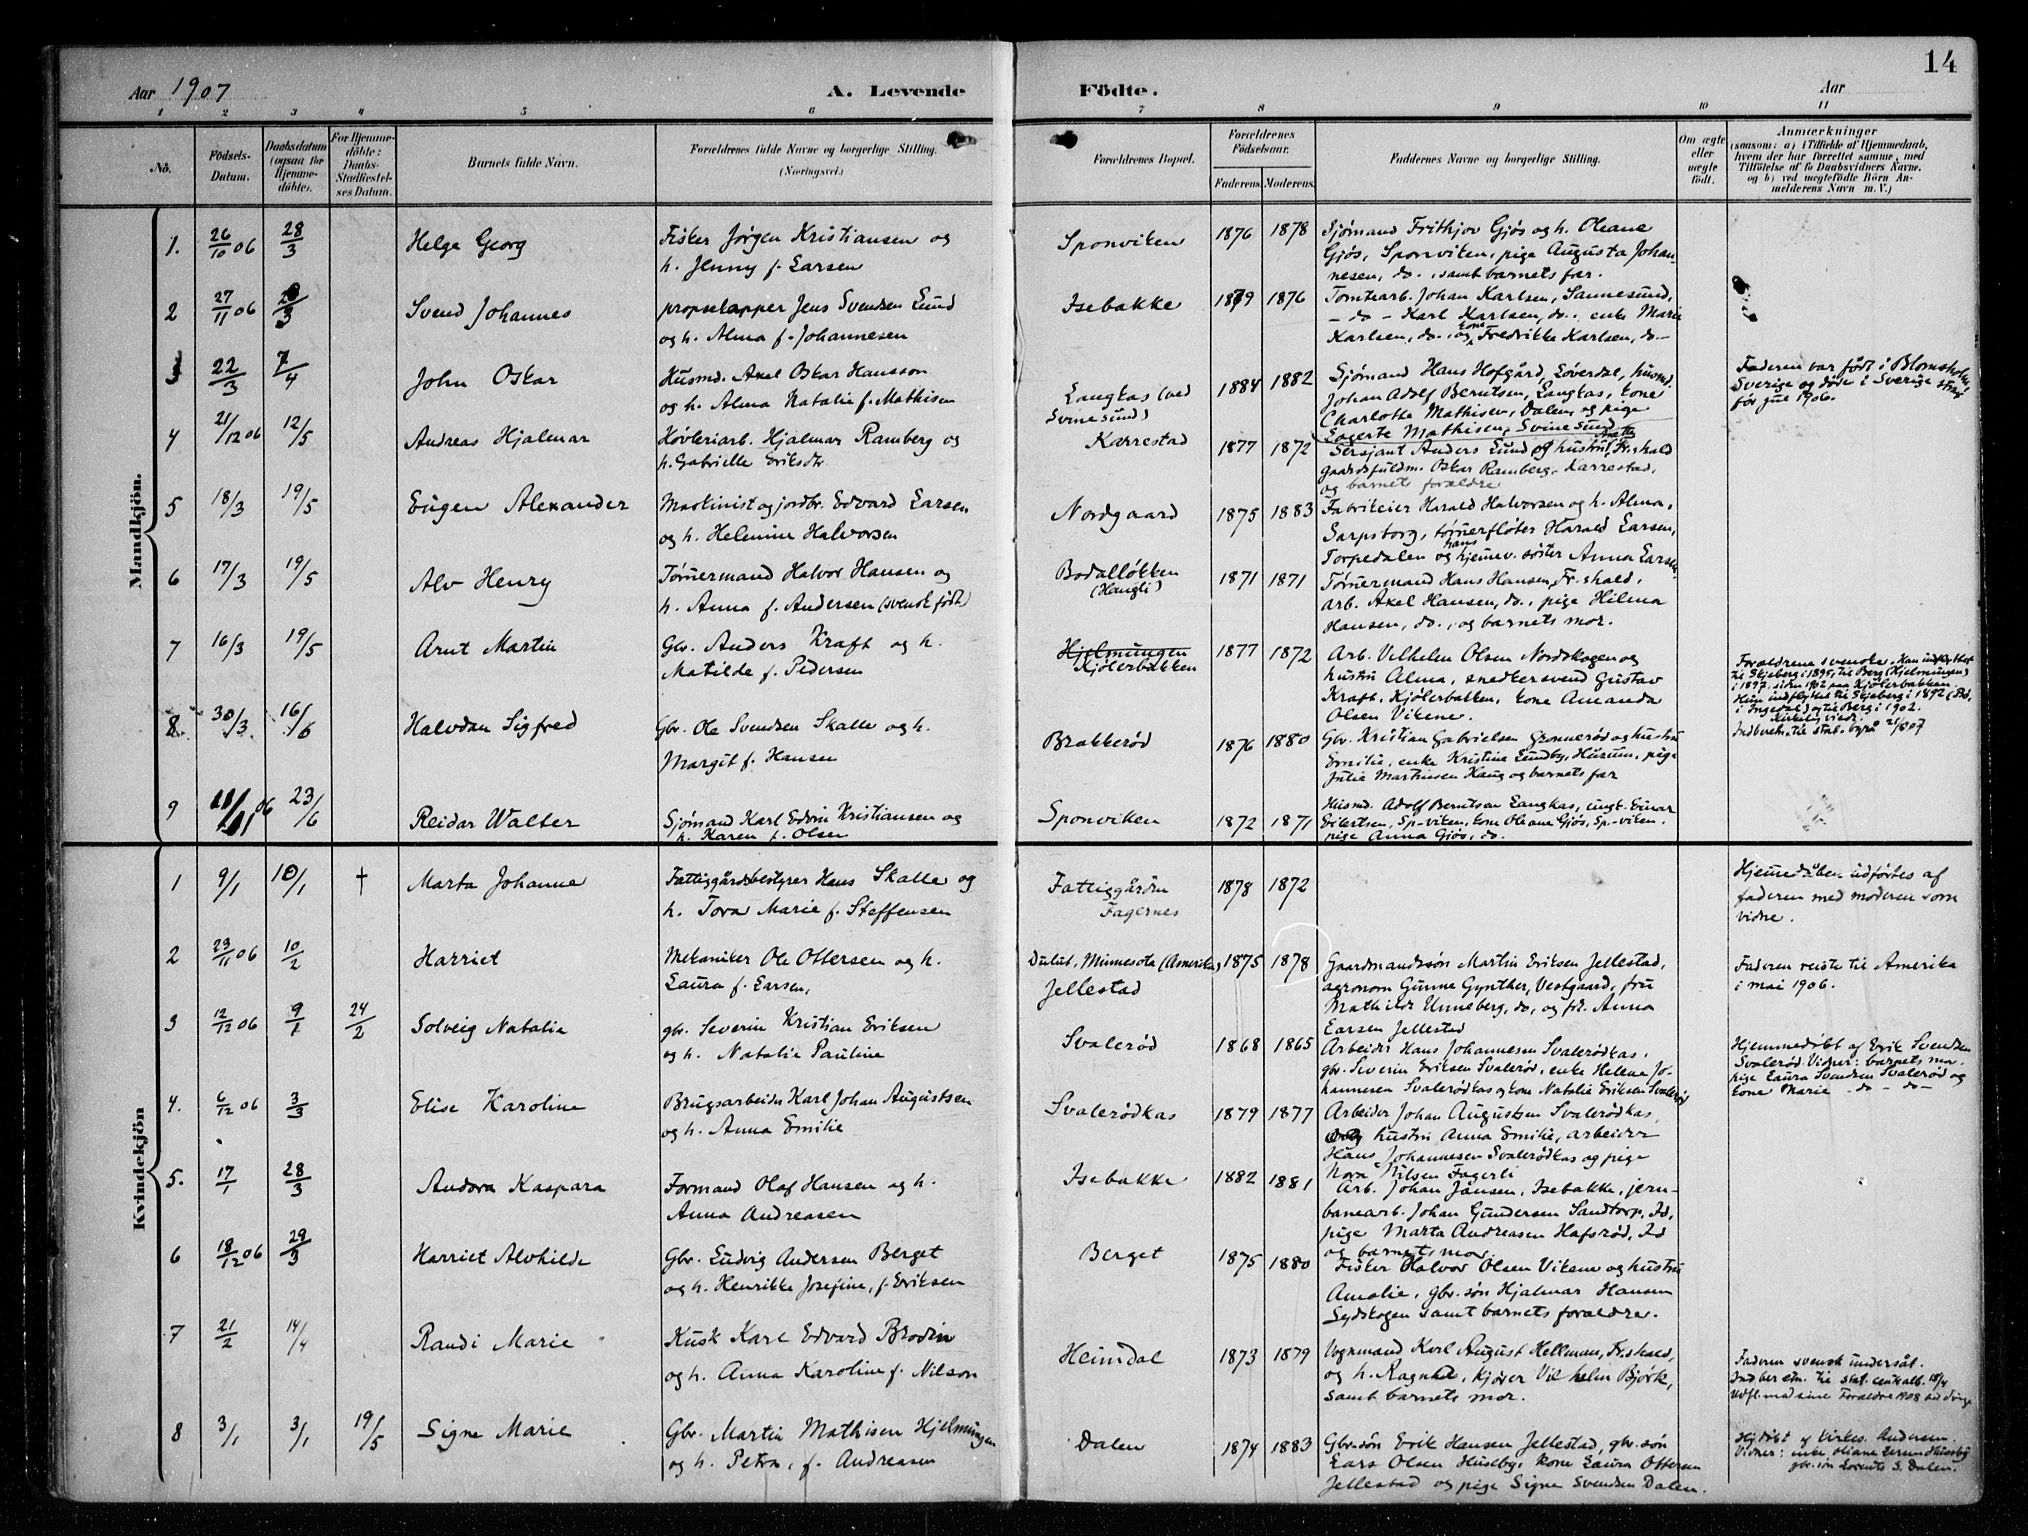 14
Aar 1907
A. Levende
Födte.
Aar
1 2 3 4 5 6 7 8 9 10 11
No.
Födsels-
Datum.
Daabsdatum
(ogsaa for
Hjemme-
döbte).
For Hjemme-
döbte:
Daabs-
Stadfæstel-
ses Datum.
Barnets fulde Navn.
Forældrenes fulde Navne og borgerlige Stilling.
(Næringsvei.)
Forældrenes Bopæl.
Forældrenes
Födselsaar.
Faderens. Moderens.
Faddernes Navne og borgerlige Stilling.
Om ægte
eller
uægte
födt.
Anmærkninger
(saasom: a) i Tilfælde af Hjemmedaab,
hvem der har forrettet samme, med
Tilföielse af to Daabsvidners Navne.
og b) ved uægtefödte Börn An-
melderens Navn m. V.)
Mandkjön.
1. 26/10 06 28/3 Helge Georg
Fisker Jørgen Kristiansen og
h. Jenny f. Larsen
Sponviken 1876 1878
Sjømand Frithjov Gjøs og h. Oleane
Gjøs, Sponviken, pige Augusta Johan-
nesen, do., samt barnets far.
2 27/11 06 28/3 Svend Johannes
propskapper Jens Svendsen Lund
og h. Alma f. Johannesen
Isebakke 1879 1876
Tomtearb. Johan Karlsen, Sannesund,
- do - Karl Karlsen, do., enke Marie
Karlsen, do., og kone Fredrikke Karlsen, do.-
3 22/3 7/4 John Oskar
Husmd. Axel Oskar Hansson
og h. Alma Natalie f. Mathisen
Langkas (ved
Svinesund)
1884 1882
Sjømand Hans Hofgård, Løverdal, husmd.
Johan Adolf Berntsen, Langkas, kone
Charlotte Mathisen, Dalen, og pige
Lagerte Mathisen, Svinesund
Faderen var født i Blomsholm,
Sverige og døde i Sverige strax
før jul 1906.
4 21/12 06 12/5 Andreas Hjalmar
Høvleriarb. Hjalmar Ramberg og
h. Gabrielle Eriksdtr
Karrestad 1877 1872
Sersjant Anders Lund og hustru, Fr.shald
gaardsfuldm. Oskar Ramberg, Karrestad,
og barnets forældre
5 18/3 19/5 Eugen Alexander
Maskinist og jordbr. Edvard Larsen
og h. Helenine Halvorsen
Nordgaard 1875 1883
Fabrikeier Harald Halvorsen og h. Alma,
Sarpsborg, tømmerfløter Harald Larsen,
Torpedalen og hans hjemmev. søster Anna Larsen.
6 17/3 19/5 Alv Henry
Tømmermand Halvor Hansen og
h. Anna f. Andersen (svensk født)
Bodalløkken
(Haugli)
1871 1871
Tømmermand Hans Hansen, Fr.shald,
arb. Axel Hansen, do., pige Hilma
Hansen, do., og barnets mor.
7 16/3 19/5 Arnt Martin
Gbr. Anders Kraft og h.
Matilde f. Pedersen
Hjelmungen
Kjølerbakken
1877 1872
Arb. Vilhelm Olsen Nordskogen og
hustru Alma, snedkersvend Gustav
Kraft, Kjølerbakken, kone Amanda
Olsen Vikene.
Forældrene svenske. Han indflyttet
til Skjeberg i 1895, til Berg (Hjelmungen)
i 1897, siden 1902 paa Kjølerbakken.
Hun indflyttet til Skjeberg i 1892 (Bø,
i Ingedal) og til Berg i 1902.
Kirkelig viede.
Indberetn. til stat. byrå 21/6 07
8. 30/3 16/6 Halvdan Sigfred
Gbr. Ole Svendsen Skalle og h.
Margit f. Hansen
Brakkerød 1876 1880
Gbr. Kristian Gabrielsen Grønnerød og hustru
Emilie, enke Kristine Lundby, Husum, pige
Julie Marthinsen Haug og barnets far
9 11/11 06 23/6 Reidar Walter
Sjømand Karl Edvin Kristiansen og
h. Karen f. Olsen
Sponviken 1872 1871
Husmd. Adolf Berntsen Langkas, ungk. Einar
Eilertsen, Sp-viken, kone Oleane Gjøs, Sp-viken,
pige Anna Gjøs, do.
Kvindekjön
1 9/1 10/1 † Marta Johanne
Fattiggårdsbestyrer Hans Skalle og
h. Tora Marie f. Steffensen
Fattiggården
Fagernes
1878 1872
Hjemmedåben udførtes af
faderen med moderen som
vidne.
2 23/11 06 10/2 Harriet
Mekaniker Ole Ottersen og h.
Laura f. Larsen,
Dulut, Minnesota (Amerika)
Jellestad
1875 1878
Gaardmandssøn Martin Eriksen Jellestad,
agronom Gunne Gynther, Vestgaard, fru
Mathilde Unneberg, do, og frk. Anna
Larsen Jellestad
Faderen reiste til Amerika
i mai 1906.
3 12/12 06 9/1 24/2 Solveig Natalia
gbr. Severin Kristian Eriksen
og h. Natalie Pauline
Svalerød 1868 1865
Arbeider Hans Johannesen Svalerødkas,
gbr. Severin Eriksen Svalerød, enke Helene Jo-
hannesen Svalerødkas og kone Natalie Eriksen Svalerød
Hjemmedøbt af Erik Svendsen
Svalerød. Vidner: barnets mor
pige Laura Svendsen Svalerød og
kone Marie - do - do -
4. 6/12 06 3/3 Elise Karoline
Brugsarbeider Karl Johan Augustsen
og h. Anna Emilie
Svalerødkas 1879 1877
Arbeider Johan Augustsen Svalerødkas,
og hustru Anna Emilie, arbeider
Hans Johannesen Svalerødkas og pige
Nora Nilsen Fagerli
5. 17/1 28/3 Andora Kaspara
Formand Olaf Hansen og h.
Anna Andreasen
Isebakke 1882 1881
Arb. Johan Jansen, Isebakke, jern-
banearb. Johan Gundersen Sandtorp, Id,
pige Marta Andreasen Hafsrød, Id
og barnets mor.
6 18/12 06 29/3 Harriet Alvhilde
Gbr. Ludvig Andersen Berget
og h. Henrikke Josefine, f. Eriksen
Berget 1875 1880
Fisker Halvor Olsen Vikene og hustru
Amalie, gbr. søn Hjalmar Hansen
Sydskogen samt barnets forældre.
7 21/2 14/4 Randi Marie
Kusk Karl Edvard Brodin
og h. Anna Karoline f. Nilson
Heimdal 1873 1879
Vognmand Karl August Hellman, Fr.shald,
og h. Ragnhild, kjører Vilhelm Bjørk,
samt barnets mor.
Faderen svensk undersåt.
Indberetn. til stat. centralb. 18/4
Udfl. med sine Forældre 1908
8 3/1 3/1 19/5 Signe Marie
Gbr. Martin Mathisen Hjelmungen
og h. Petra, f. Andreasen
Dalen 1874 1883
Gbr.søn Erik Hansen Jellestad, gbr. søn
Lars Olsen Huseby, kone Laura Ottersen
Jellestad og pige Signe Svendsen Dalen.
Hjdøbt af Kirkes. Andersen.
Vidner: enke Oliane Huseby
gbr. søn Lorents S. Dalen.